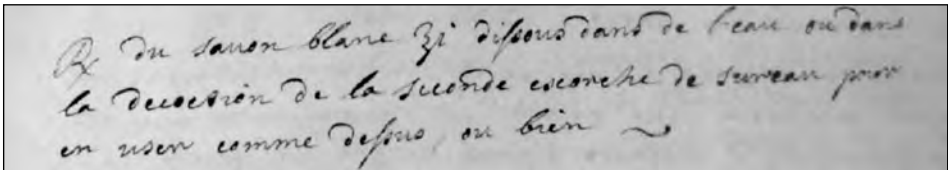 ℞ du savon blanc ʒi dissous dans de l'eau ou dans
la decoction de la seconde escorche de sureau pour
en user comme dessus, ou bien